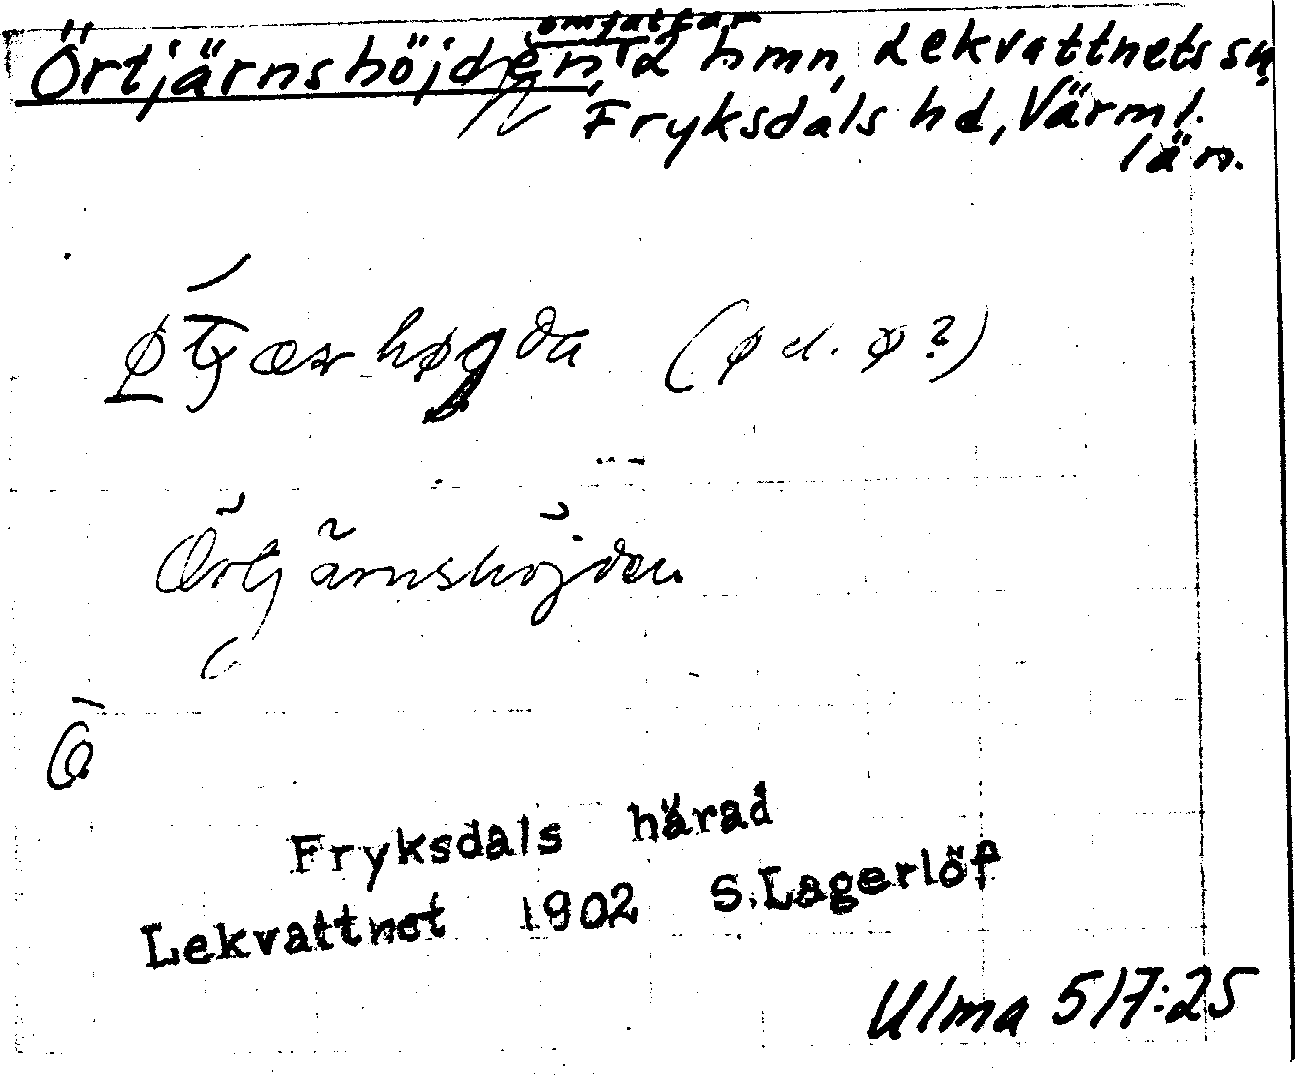 omfattar
Örtjärnshöjden, 2 hmn, Lekvattnets sn,
Fryksdals hd, Värml.
län.
(ø el. ø?)
Örtjärnshöjden.
Fryksdals härad
Lekvattnet 1902 S.Lagerlöf
Ulma 517:25